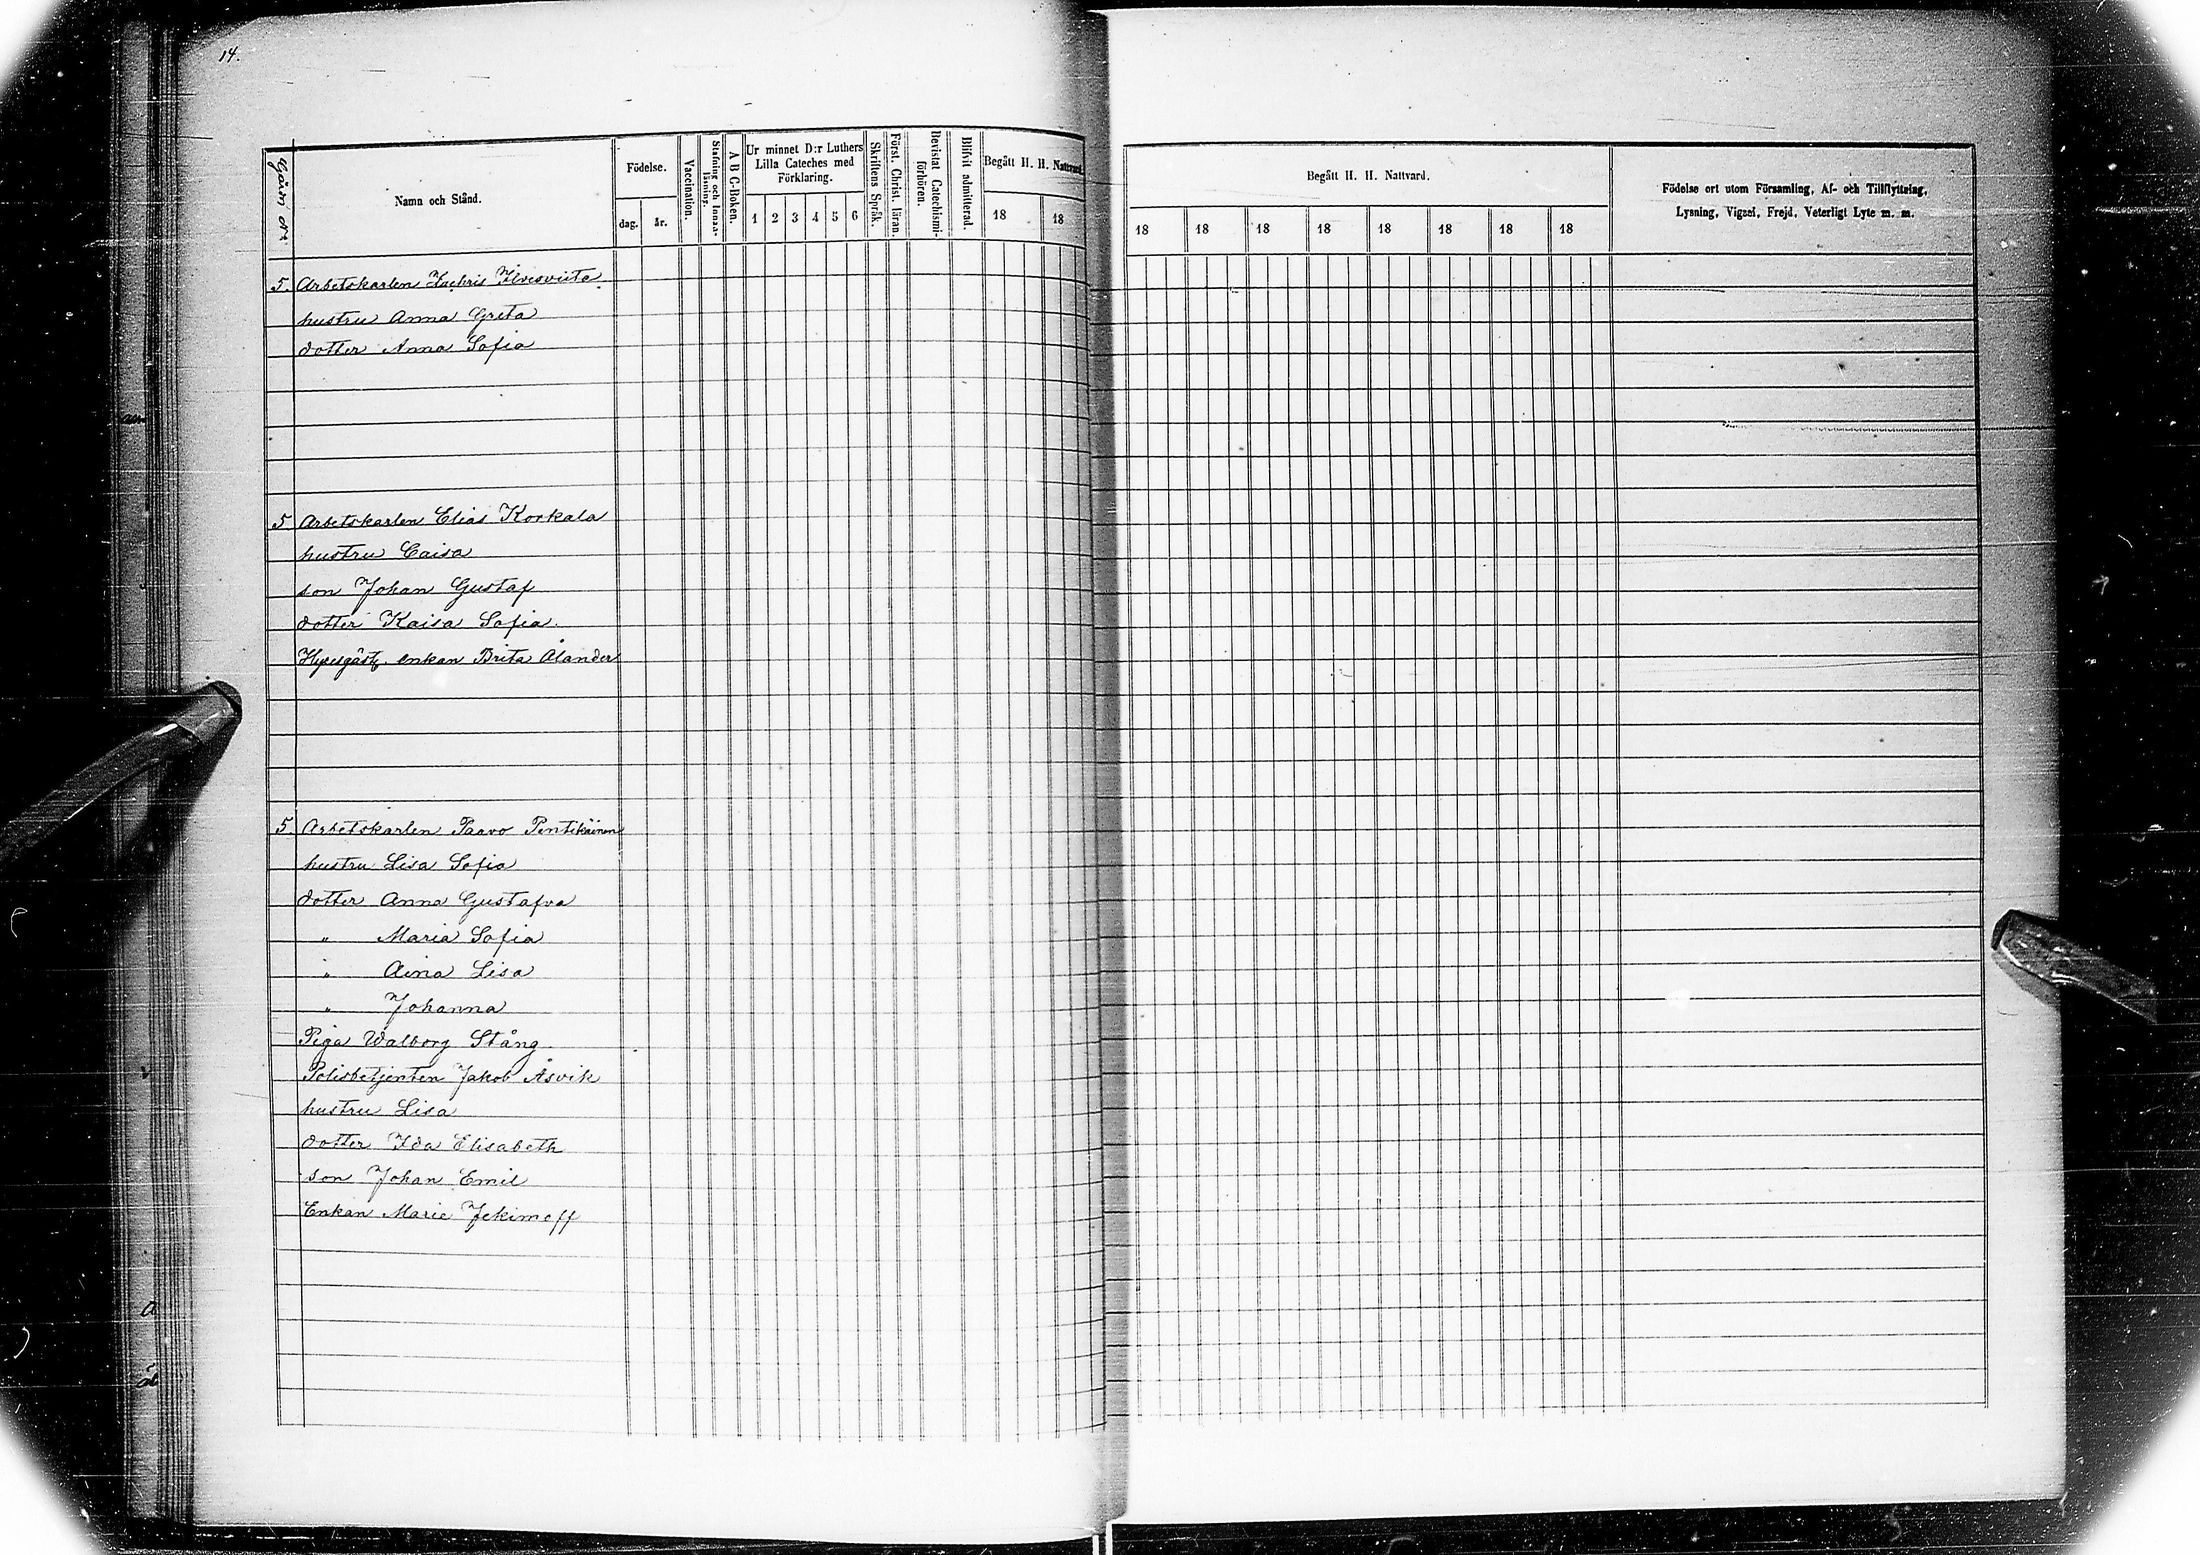 14.
Gården № Namn och Stånd. Födelse. dag. år. Vaccination. Stafning och Innanläsning. A B C-Boken. Ur minnet D:r Luthers Lilla Cateches med Förklaring. 1 2 3 4 5 6 Skriftens Språk. Först. Christ. läran. Bevistat Catechismiförhören. Blifvit admitterad. Begått H. H. Nattvard. 18 18
5. Arbetskarlen Zachris Ilvesviita
hustru Anna Greta
dotter Anna Sofia
5 Arbetskarlen Elias Korkala
hustru Caisa
son Johan Gustaf
dotter Kaisa Sofia.
Hyresgäst. enkan Brita Ålander
5. Arbetskarlen Paavo Pentikäinen
hustru Lisa Sofia
dotter Anna Gustafva
" Maria Sofia
" Aina Lisa
" Johanna
Piga Walborg Stång
Polisbetjenten Jakob Åsvik
hustru Lisa
dotter Ida Elisabeth
son Johan Emil
Enkan Marie Jekimoff
Begått H. H. Nattvard.
18 18 18 18 18 18 18 18
Födelse ort utom Församling, Af- och Tillflyttning,
Lysning, Vigsel, Frejd, Veterligt Lyte m. m.